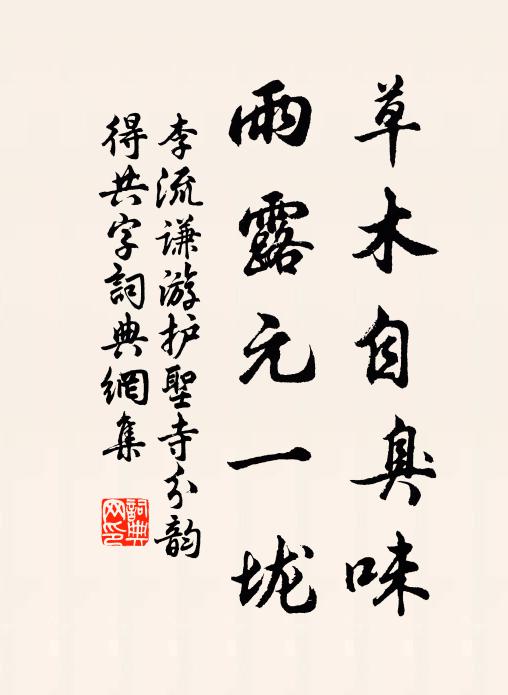 草木自臭味
雨露元一垅
李流谦游护聖寺分韵
得共字詞典網集
詞典网印